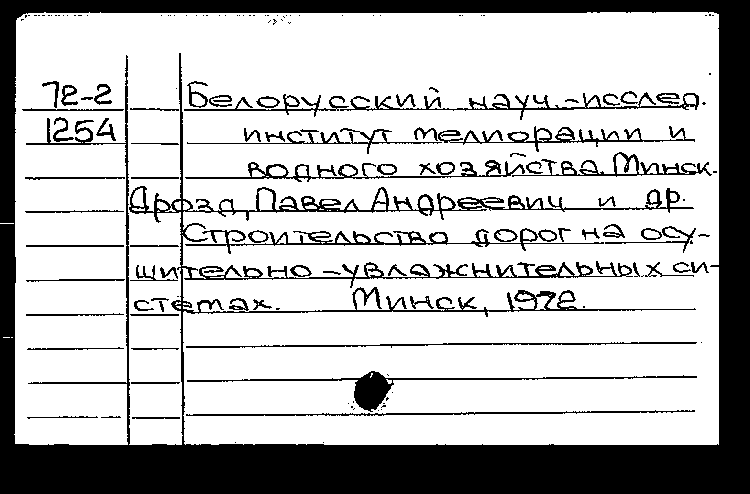 72-2 Белорусский науч.-исслед.
1254 институт мелиорации и
водного хозяйства. Минск.
Дрозд, Павел Андреевич и др.
Строительство дорог на осу-
шительно-увлажнительных си-
стемах. Минск, 1972.